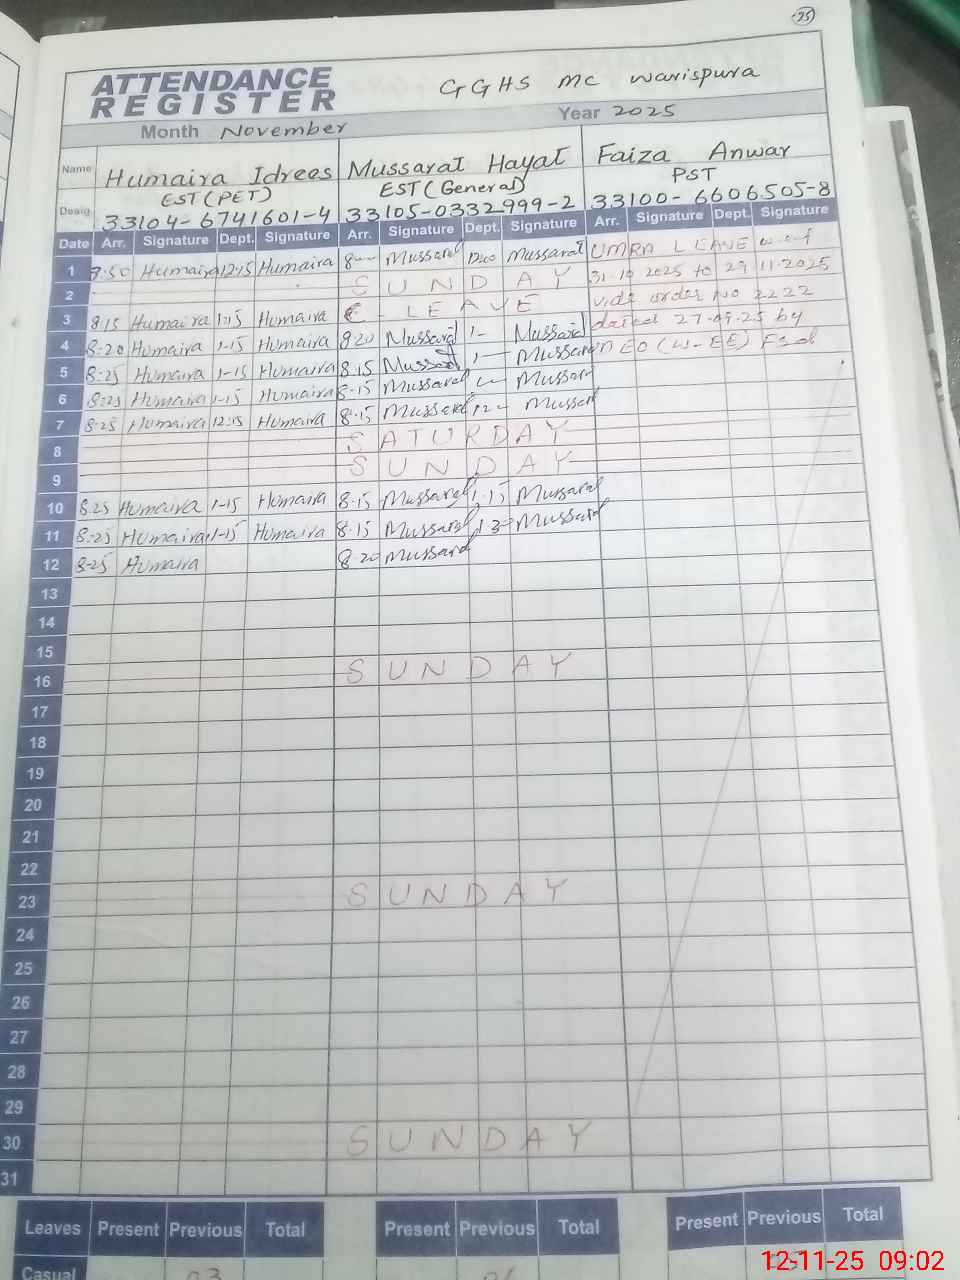 25
ATTENDANCE
REGISTER
GGHS MC Warispura
Month November
Year 2025
Name Humaira Idrees Mussarat Hayat Faiza Anwar
EST (PET) EST (General) PST
Desig. 33104-6741601-4 33105-0332999-2 33100-6606505-8
Date Arr. Signature Dept. Signature Arr. Signature Dept. Signature Arr. Signature Dept. Signature
1 7:50 Humaira 12:15 Humaira 8— Mussarat 1200 Mussarat UMRA LEAVE w.e.f
2 SUNDAY 31-10 2025 to 29.11.2025
3 8:15 Humaira 1:15 Humaira C- LEAVE vide order No 2222
4 8:20 Humaira 1-15 Humaira 820 Mussarat 1- Mussarat dated 27.09.25 by
5 8:25 Humaira 1-15 Humaira 8.15 Mussarat 1— Mussarat EO (W-EE) Fsd
6 8:25 Humaira 1-15 Humaira 8-15 Mussarat Mussarat
7 8:25 Humaira 12:15 Humaira 8.15 Mussarat 12- Mussarat
8 SATURDAY
9 SUNDAY
10 8.25 Humaira 1-15 Humaira 8.15 Mussarat 1.15 Mussarat
11 8:25 Humaira 1-15 Humaira 8.15 Mussarat 1 30 Mussarat
12 8-25 Humaira 8.20 Mussarat
13
14
15
16 SUNDAY
17
18
19
20
21
22
23 SUNDAY
24
25
26
27
28
29
30 SUNDAY
31
Leaves Present Previous Total Present Previous Total Present Previous Total
Casual 03
12-11-25 09:02